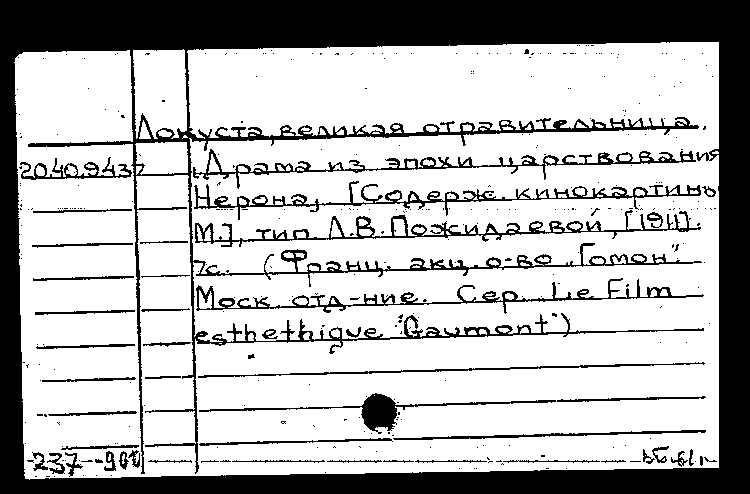 Локуста, великая отравительница.
20.40.9437 Драма из эпохи царствования
Нерона, [Содерж. кинокартины
М.], тип Л.В. Пожидаевой, [1911].
7с. (Франц. акц. о-во „Гомон".
Моск отд-ние. Сер. Le Film
esthethique "Gaumont")
-237